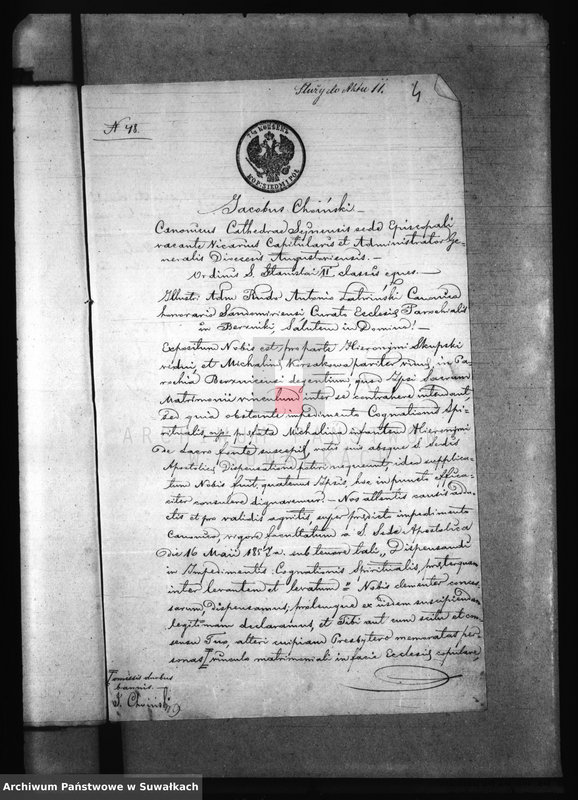 Służy do Aktu 11.
4
N 48.
7½ КОПѢЕКЪ
Jacobus Choiński
Canonicus Cathedrae Seynensis sede Episcopali
vacante Vicarius Capitularis et Administrator Ge-
neralis Dioecesis Augustoviensis.
Ordinis S. Stanislai II classis eques.
Illustri Adm Rndo Antonio Canonico
honorario Sandomiriensi Curato Ecclesiae Parochialis
in Berzniki, Salutem in Domino!
Expositum Nobis est, pro parte Hieronymi Skupski
vidui, et Michalinae Korsakowa pariter viduae, in Pa-
rochia Berznicensi degentium, quod Ipsi Sacrum
Matrimonii vinculum inter se contrahere intendant,
sed quia obstante impedimento Cognationis Spi-
ritualis, praefata Michalina infantem Hieronymi
de Sacro fonte suscepit, votis suis absque S. Sedis
Apostolicae Dispensatione potiri nequeunt, ideo supplica-
tum Nobis fuit, quatenus Ipsis, hoc in puncto effica-
citer consulere dignaremur. Nos attentis causis addu-
ctis et pro validis agnitis, super praedicto impedimento
Canonico, vigore facultatum a S. Sede Apostolica
die 16 Maii 1857 a. sub tenore tali "Dispensandi
in Impedimentis Cognationis Spiritualis, praeterquam
inter levantem et levatum" Nobis clementer conces-
sarum Dispensamus, prolemque ex iisdem suscipiendam
legitimam declaramus, et Tibi aut cum scitu et con-
sensu Tuo, alteri cuipiam Presbytero memoratas per
sonas vinculo matrimoniali in facie Ecclesiae copulare,
omissis duobus
bannis.
J. Choiński
Archiwum Państwowe w Suwałkach